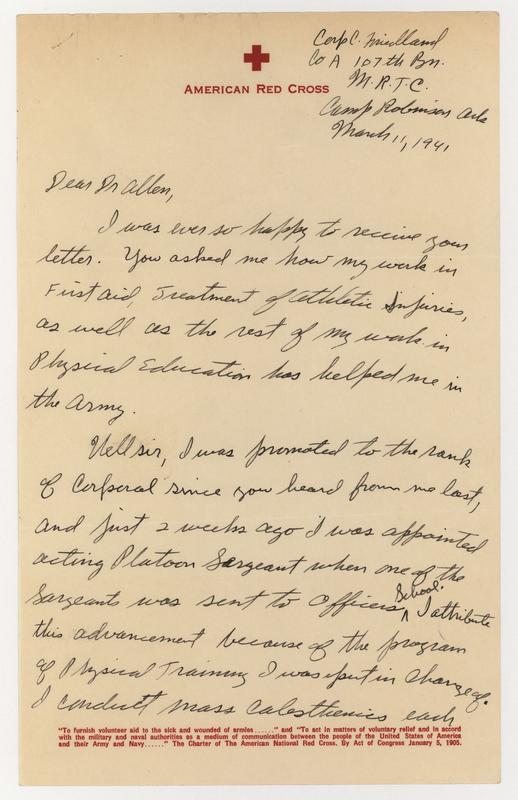 Corp C. Midland
Co A 107th Bn.
M.R.T.C.
Camp Robinson Ark
March 11, 1941
AMERICAN RED CROSS
Dear Dr Allen,
I was ever so happy to receive your
letter. You asked me how my work in
First aid, Treatment of Athletic Injuries,
as well as the rest of my work in
Physical Education has helped me in
the Army.
Well sir, I was promoted to the rank
of Corporal since you heard from me last,
and just 2 weeks ago I was appointed
acting Platoon Sargeant when one of the
Sargeants was sent to Officers ^ School. I attribute
this advancement because of the program
of Physical Training I was put in charge of.
I conduct mass calesthenics each
"To furnish volunteer aid to the sick and wounded of armies......" and "To act in matters of voluntary relief and in accord
with the military and naval authorities as a medium of communication between the people of the United States of America
and their Army and Navy......" The Charter of The American National Red Cross. By Act of Congress January 5, 1905.